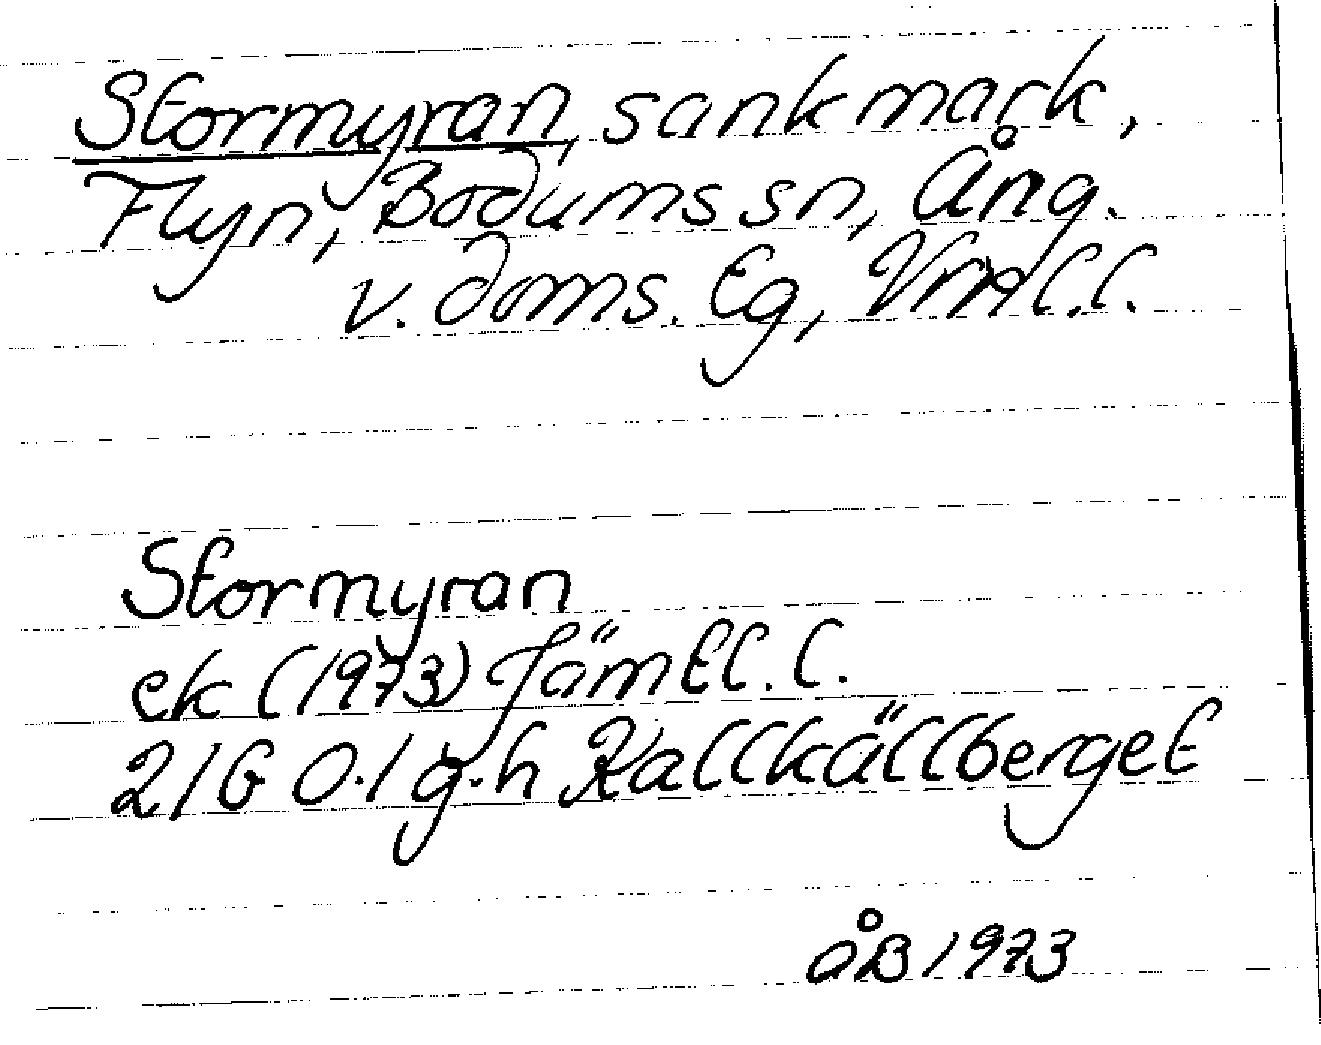 Stormyran, sankmark,
Flyn, Bodums sn, Ång.
v. doms. Eg,
Stormyran
ek (1973) Jämtl.l.
21G 0.1 g.h Kallkällberget
åB 1973